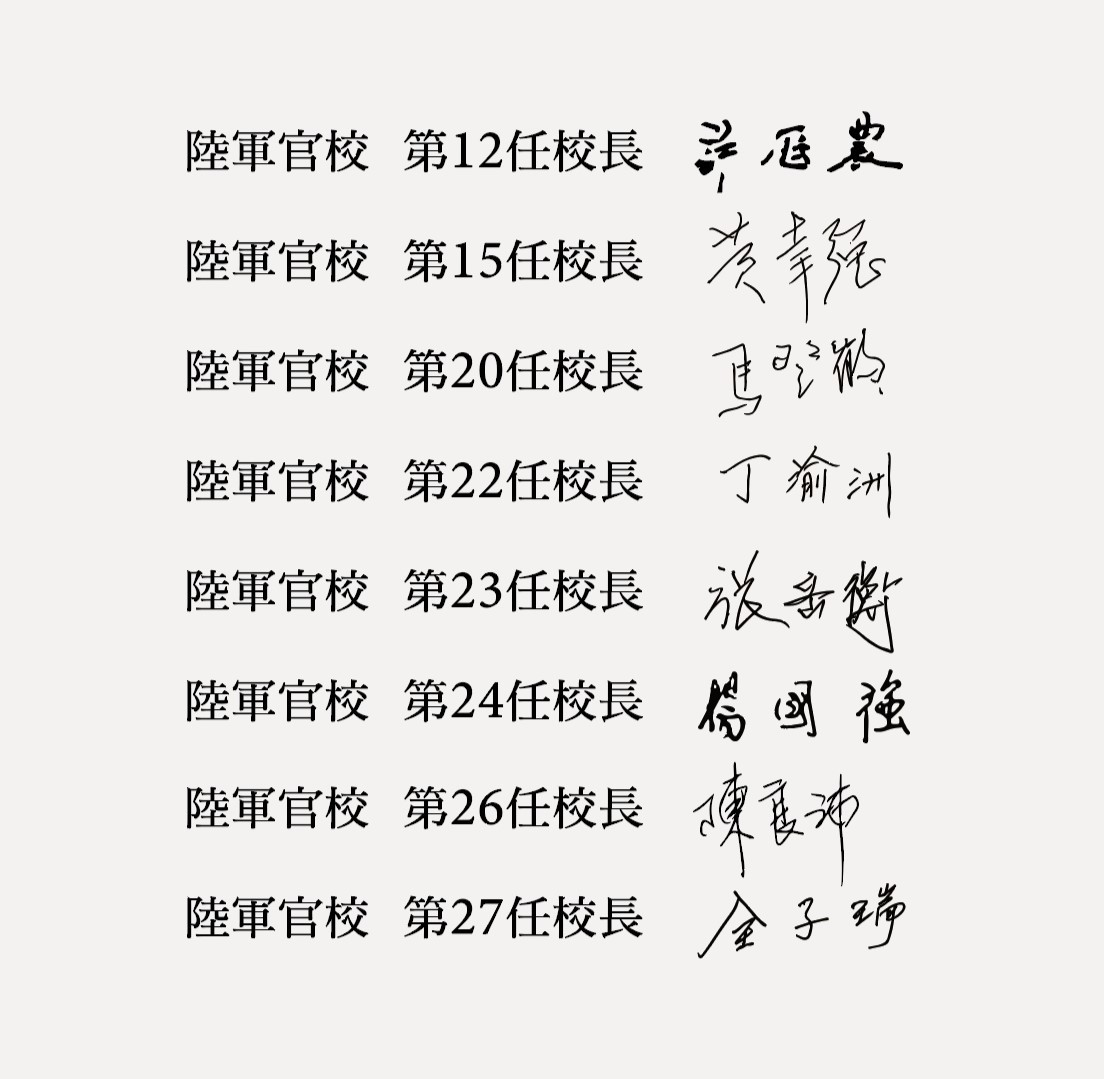 陸軍官校 第12任校長
陸軍官校 第15任校長 黃幸強
陸軍官校 第20任校長 馬登鶴
陸軍官校 第22任校長 丁渝洲
陸軍官校 第23任校長 張岳衡
陸軍官校 第24任校長 楊國強
陸軍官校 第26任校長 陳良沛
陸軍官校 第27任校長 金子瑞